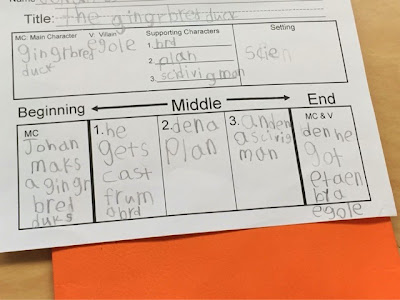 Name
Title: the gingrbred duck
MC Main Character V. Villain Supporting Characters Setting
gingrbred duck
egole
1. brd
2. plan
3. scidivig man
scien
Beginning Middle End
MC
Johan
maks
a gingr
bred
duks
1. he
gets
cast
frum
a brd
2. den a
plan
3. an den
a scivig
man
MC & V
den he
got
etaen
by a
egole